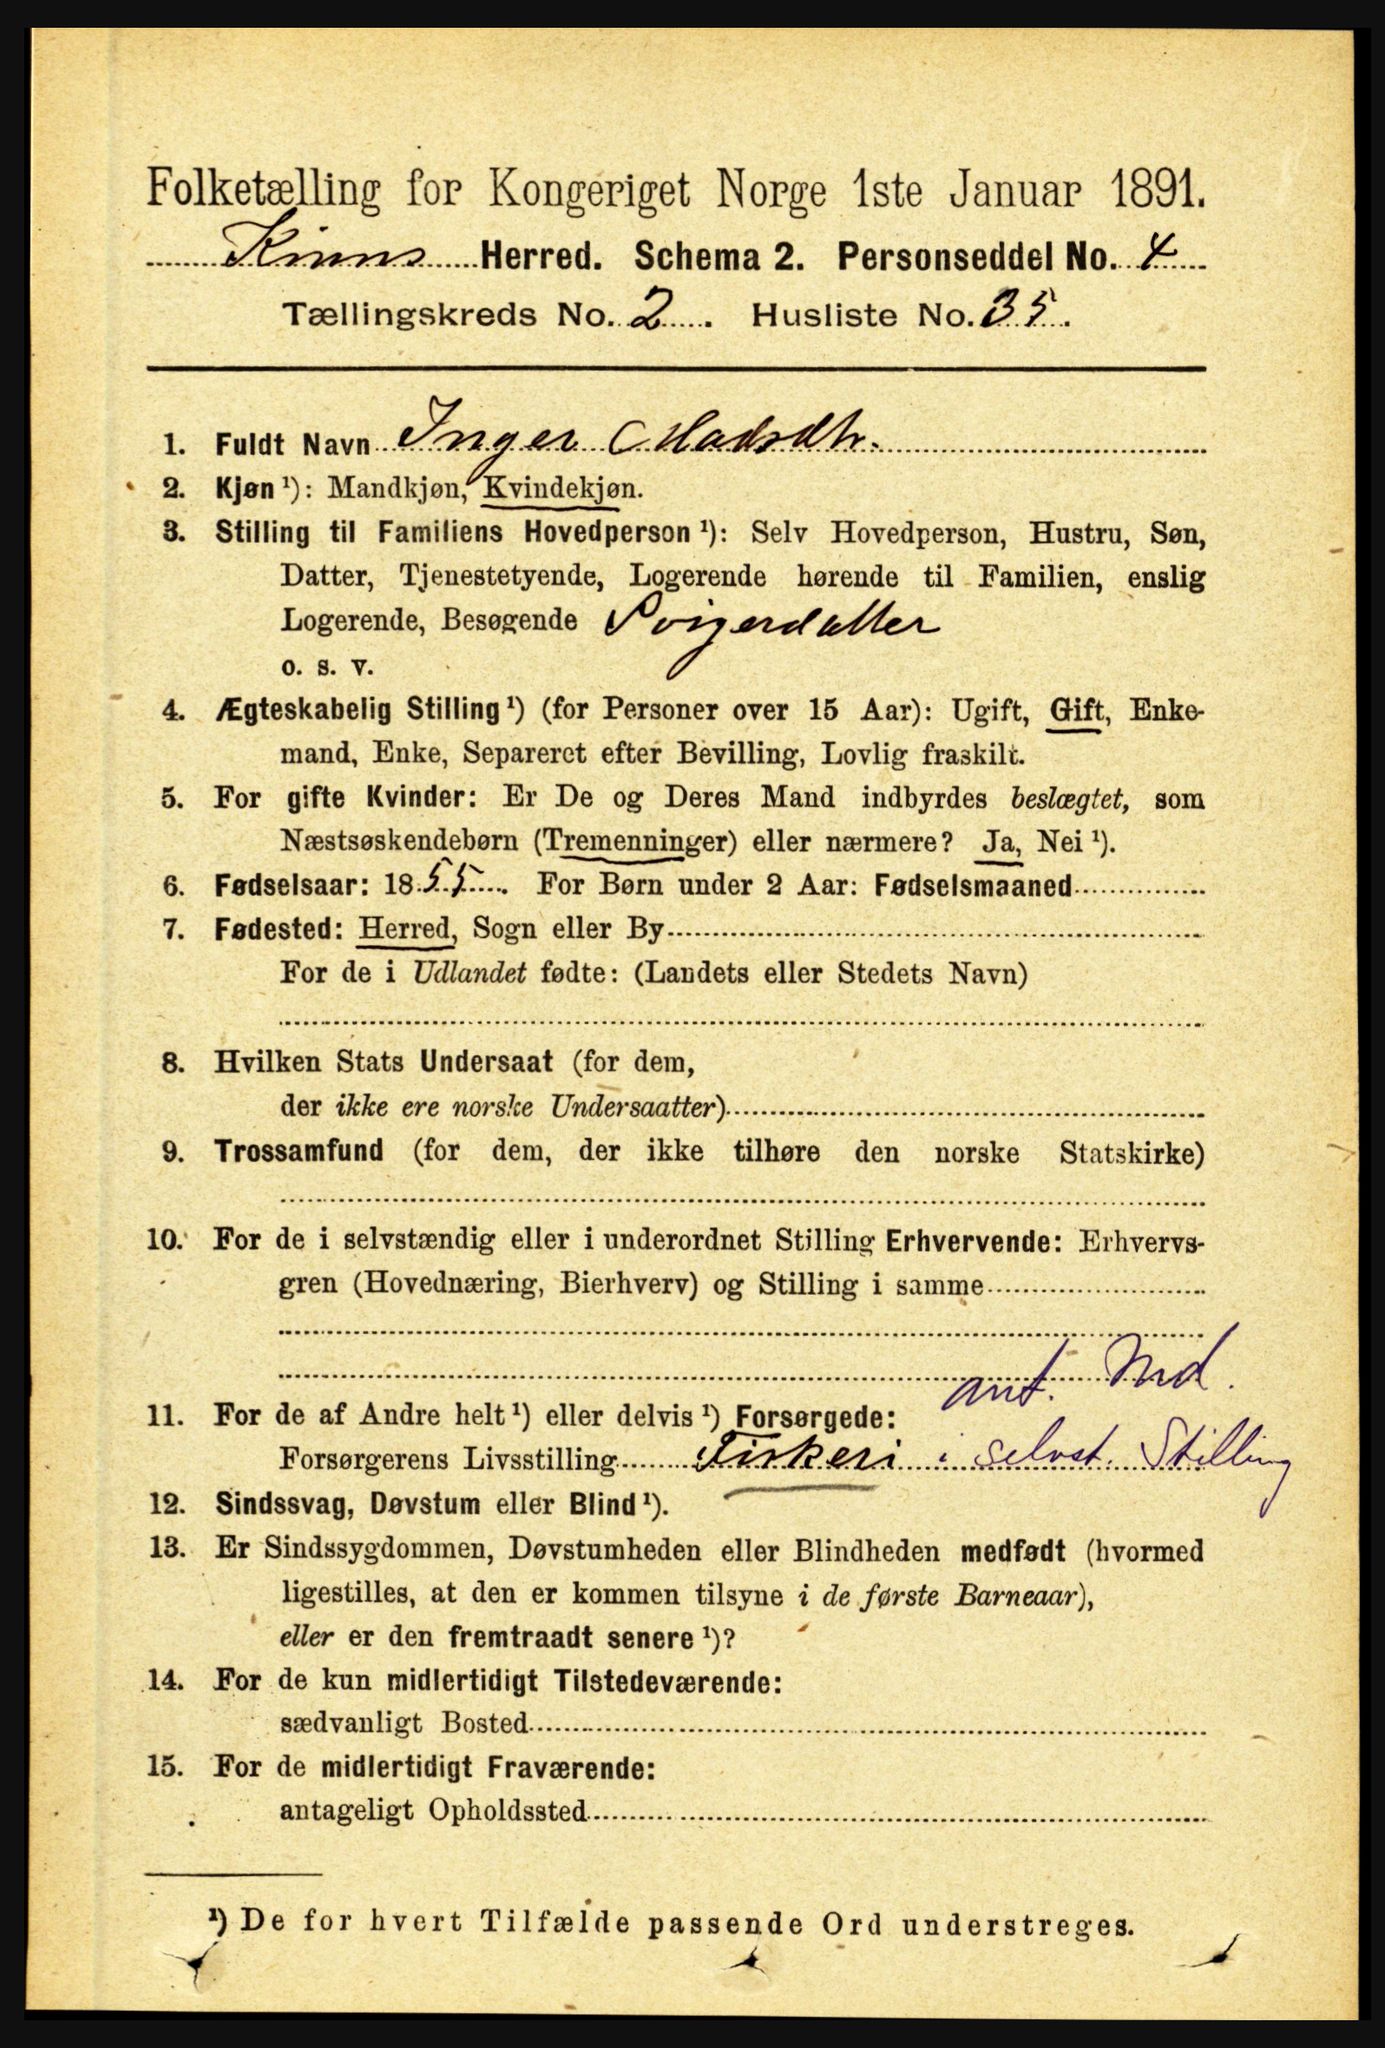 Folketælling for Kongeriget Norge 1ste Januar 1891.
Kinns Herred. Schema 2. Personseddel No. 4
Tællingskreds No. 2. Husliste No. 35.
1. Fuldt Navn Inger Madsdtr.
2. Kjøn ¹): Mandkjøn, Kvindekjøn.
3. Stilling til Familiens Hovedperson ¹): Selv Hovedperson, Hustru, Søn,
Datter, Tjenestetyende, Logerende hørende til Familien, enslig
Logerende, Besøgende Svigerdatter
o. s. v.
4. Ægteskabelig Stilling ¹) (for Personer over 15 Aar): Ugift, Gift, Enke-
mand, Enke, Separeret efter Bevilling, Lovlig fraskilt.
5. For gifte Kvinder: Er De og Deres Mand indbyrdes beslægtet, som
Næstsøskendebørn (Tremenninger) eller nærmere? Ja, Nei ¹).
6. Fødselsaar: 1855. For Børn under 2 Aar: Fødselsmaaned
7. Fødested: Herred, Sogn eller By
For de i Udlandet fødte: (Landets eller Stedets Navn)
8. Hvilken Stats Undersaat (for dem,
der ikke ere norske Undersaatter)
9. Trossamfund (for dem, der ikke tilhøre den norske Statskirke)
10. For de i selvstændig eller i underordnet Stilling Erhvervende: Erhvervs-
gren (Hovednæring, Bierhverv) og Stilling i samme
ant. Md.
11. For de af Andre helt ¹) eller delvis ¹) Forsørgede:
Forsørgerens Livsstilling Fiskeri i selvst. Stilling
12. Sindssvag, Døvstum eller Blind ¹).
13. Er Sindssygdommen, Døvstumheden eller Blindheden medfødt (hvormed
ligestilles, at den er kommen tilsyne i de første Barneaar),
eller er den fremtraadt senere ¹)?
14. For de kun midlertidigt Tilstedeværende:
sædvanligt Bosted
15. For de midlertidigt Fraværende:
antageligt Opholdssted
¹) De for hvert Tilfælde passende Ord understreges.